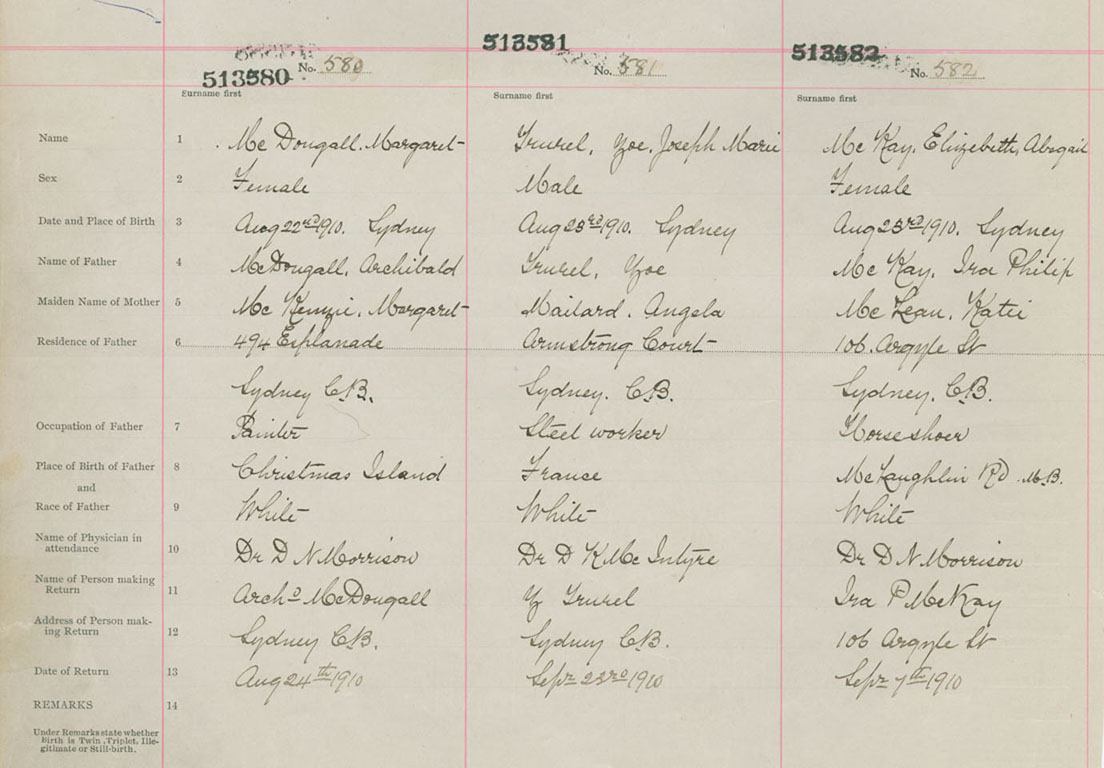 513580 No. 580 513581 No. 581 513582 No. 582
Surname first Surname first Surname first
Name 1 Mc Dougall, Margaret Trurel, Yoe, Joseph Marie Mc Kay, Elizebeth, Abegail
Sex 2 Female Male Female
Date and Place of Birth 3 Aug 22nd 1910. Sydney Aug 23rd 1910. Sydney Aug 23rd 1910. Sydney
Name of Father 4 McDougall, Archibald Trurel, Yoe Mc Kay, Ira Philip
Maiden Name of Mother 5 Mc Kenzie, Margaret Mailard, Angela Mc Lean, Katie
Residence of Father 6 494 Esplanade Armstrong Court 106 Argyle St
Sydney C.B. Sydney. C.B. Sydney. C.B.
Occupation of Father 7 Painter Steel worker Horseshoer
Place of Birth of Father 8 Christmas Island France McLaughlin Rd N.B.
and
Race of Father 9 White White White
Name of Physician in
attendance 10 Dr D N Morrison Dr D K Mc Intyre Dr D N Morrison
Name of Person making
Return 11 Archd McDougall Y Trurel Ira P McKay
Address of Person mak-
ing Return 12 Sydney C.B. Sydney C.B. 106 Argyle St
Date of Return 13 Aug 24th 1910 Sepr 23rd 1910 Sepr 7th 1910
REMARKS 14
Under Remarks state whether
Birth is Twin, Triplet, Ille-
gitimate or Still-birth.